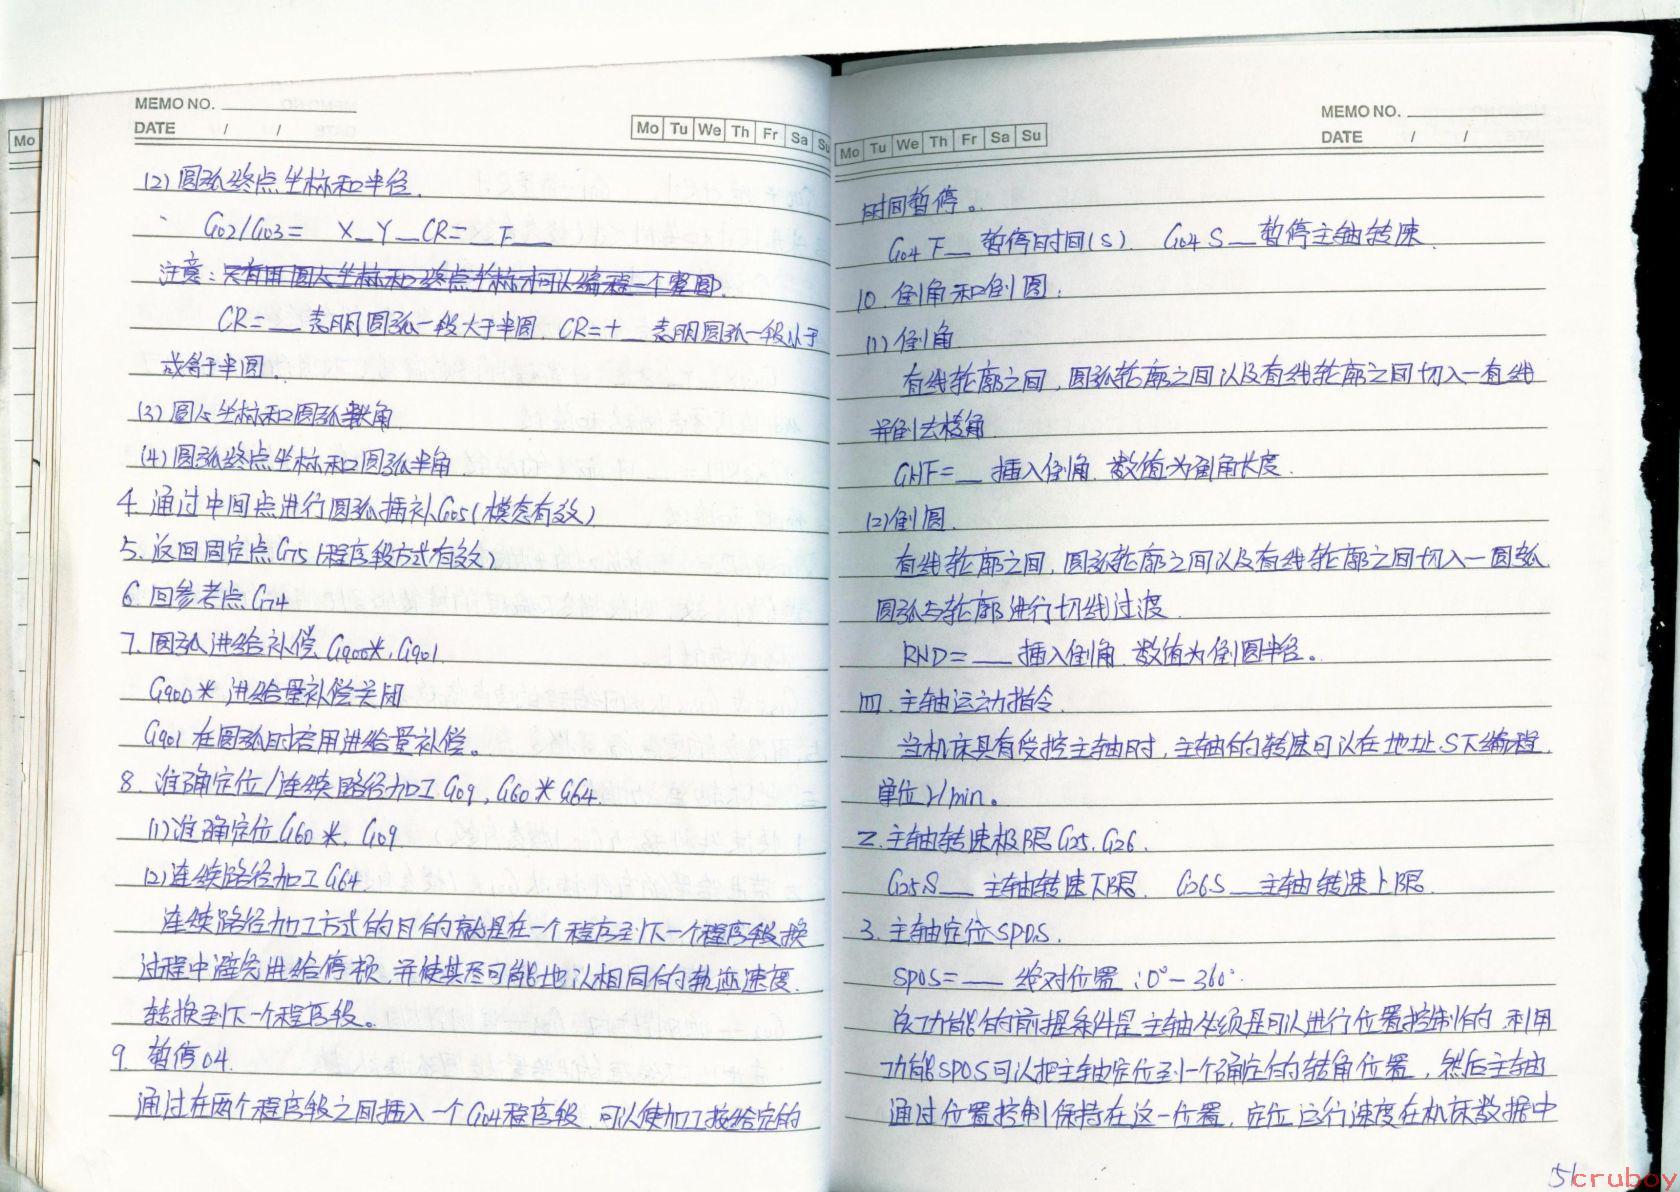 MEMO NO.
DATE / /
Mo Tu We Th Fr Sa Su
Mo
(2) 圆弧终点坐标和半径.
G02/G03= X_Y_CR=_F_
注意: 只有用圆心坐标和终点坐标才可以编程一个整圆.
CR=_ 表明圆弧一段大于半圆. CR=+_ 表明圆弧一段小于
或等于半圆.
(3) 圆心坐标和圆弧张角
(4) 圆弧终点坐标和圆弧半角
4. 通过中间点进行圆弧插补G05(模态有效)
5. 返回固定点G75(程序段方式有效)
6 回参考点G74
7. 圆弧进给补偿 G900米, G901.
G900米 进给量补偿关闭
G901 在圆弧时启用进给量补偿。
8. 准确定位/连续路径加工 G09, G60米 G64.
(1)准确定位G60米, G09
(2)连续路径加工G64.
连续路径加工方式的目的就是在一个程序到下一个程序段换
过程中避免进给停顿,并使其尽可能地以相同的轨迹速度
转换到下一个程序段。
9. 暂停04.
通过在两个程序段之间插入一个G04程序段,可以使加工按给定的
MEMO NO.
DATE / /
Mo Tu We Th Fr Sa Su
时间暂停。
G04 F_ 暂停时间(S). G04 S_暂停主轴转速.
10. 倒角和倒圆:
(1) 倒角
直线轮廓之间,圆弧轮廓之间以及直线轮廓之间切入一直线
并倒去棱角.
CHF=_ 插入倒角. 数值为倒角长度.
(2)倒圆.
直线轮廓之间,圆弧轮廓之间以及直线轮廓之间切入一圆弧.
圆弧与轮廓进行切线过渡.
RND=_ 插入倒角. 数值为倒圆半径。
四. 主轴运动指令.
当机床具有受控主轴时,主轴的转速可以在地址S下编程.
单位r/min。
2.主轴转速极限G25. G26.
G25S_ 主轴转速下限. G26S_主轴转速上限.
3. 主轴定位SPOS.
SPOS=_ 绝对位置:0°-360°.
该功能的前提条件是主轴必须是可以进行位置控制的 利用
功能SPOS可以把主轴定位到一个确定的转角位置, 然后主轴
通过位置控制保持在这一位置,定位运行速度在机床数据中
51
cruboy